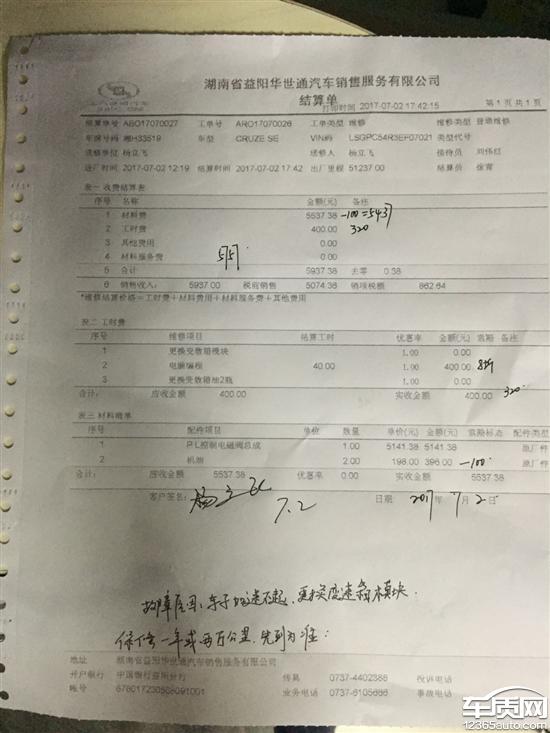 湖南省益阳华世通汽车销售服务有限公司
结算单
打印时间 2017-07-02 17:42:15
第1页共1页
结算单号 ABO17070027 工单号 ARO17070026 工单类型 维修 维修类型 普通维修
车牌号码 湘H33519 车型 CRUZE SE VIN码 LSGPC54R3EF07021 类型代号
送修单位 杨立飞 送修人 杨立飞 接待员
进厂时间 2017-07-02 12:19 结算时间 2017-07-02 17:42 出厂里程 51237.00 结算员 徐霄
表一 收费结算表
序号 名称 金额(元) 备注
1 材料费 5537.38 -100=5437
2 工时费 400.00 320
3 其他费用 0.00
4 材料服务费 0.00
5 合计 5937.38 去零 0.38
6 销售收入: 5937.00 税前销售 5074.36 销项税额 862.64
*维修结算价格=工时费+材料费用+材料服务费+其他费用
表二 工时费
序号 维修项目 结算工时 优惠率 金额(元) 索赔 备注
1 更换变数箱模块 1.00 0.00
2 电脑编程 40.00 1.00 400.00 8折
3 更换变数箱油2瓶 1.00 0.00
合计: 应收金额 400.00 实收金额 400.00 320
表三 材料明单
序号 配件项目 单位 数量 单价(元) 金额(元) 索赔标志 配件类型
1 P.L控制电磁阀总成 1.00 5141.38 5141.38 原厂件
2 机油 2.00 198.00 396.00 -100 原厂件
合计: 应收金额 5537.38 优惠率 0.00 实收金额 5537.38
客户签名: 杨立飞 7.2 日期 2017年7月2日
故障原因:车子加速不起,更换变速箱木模块.
保修一年或两万公里,先到为准:
地址 湖南省益阳华世通汽车销售服务有限公司
开户银行 中国银行益阳分行 传真 0737-4402388 投诉电话
账号 业务电话 0737-6105666 事故电话
车质网
12365auto.com